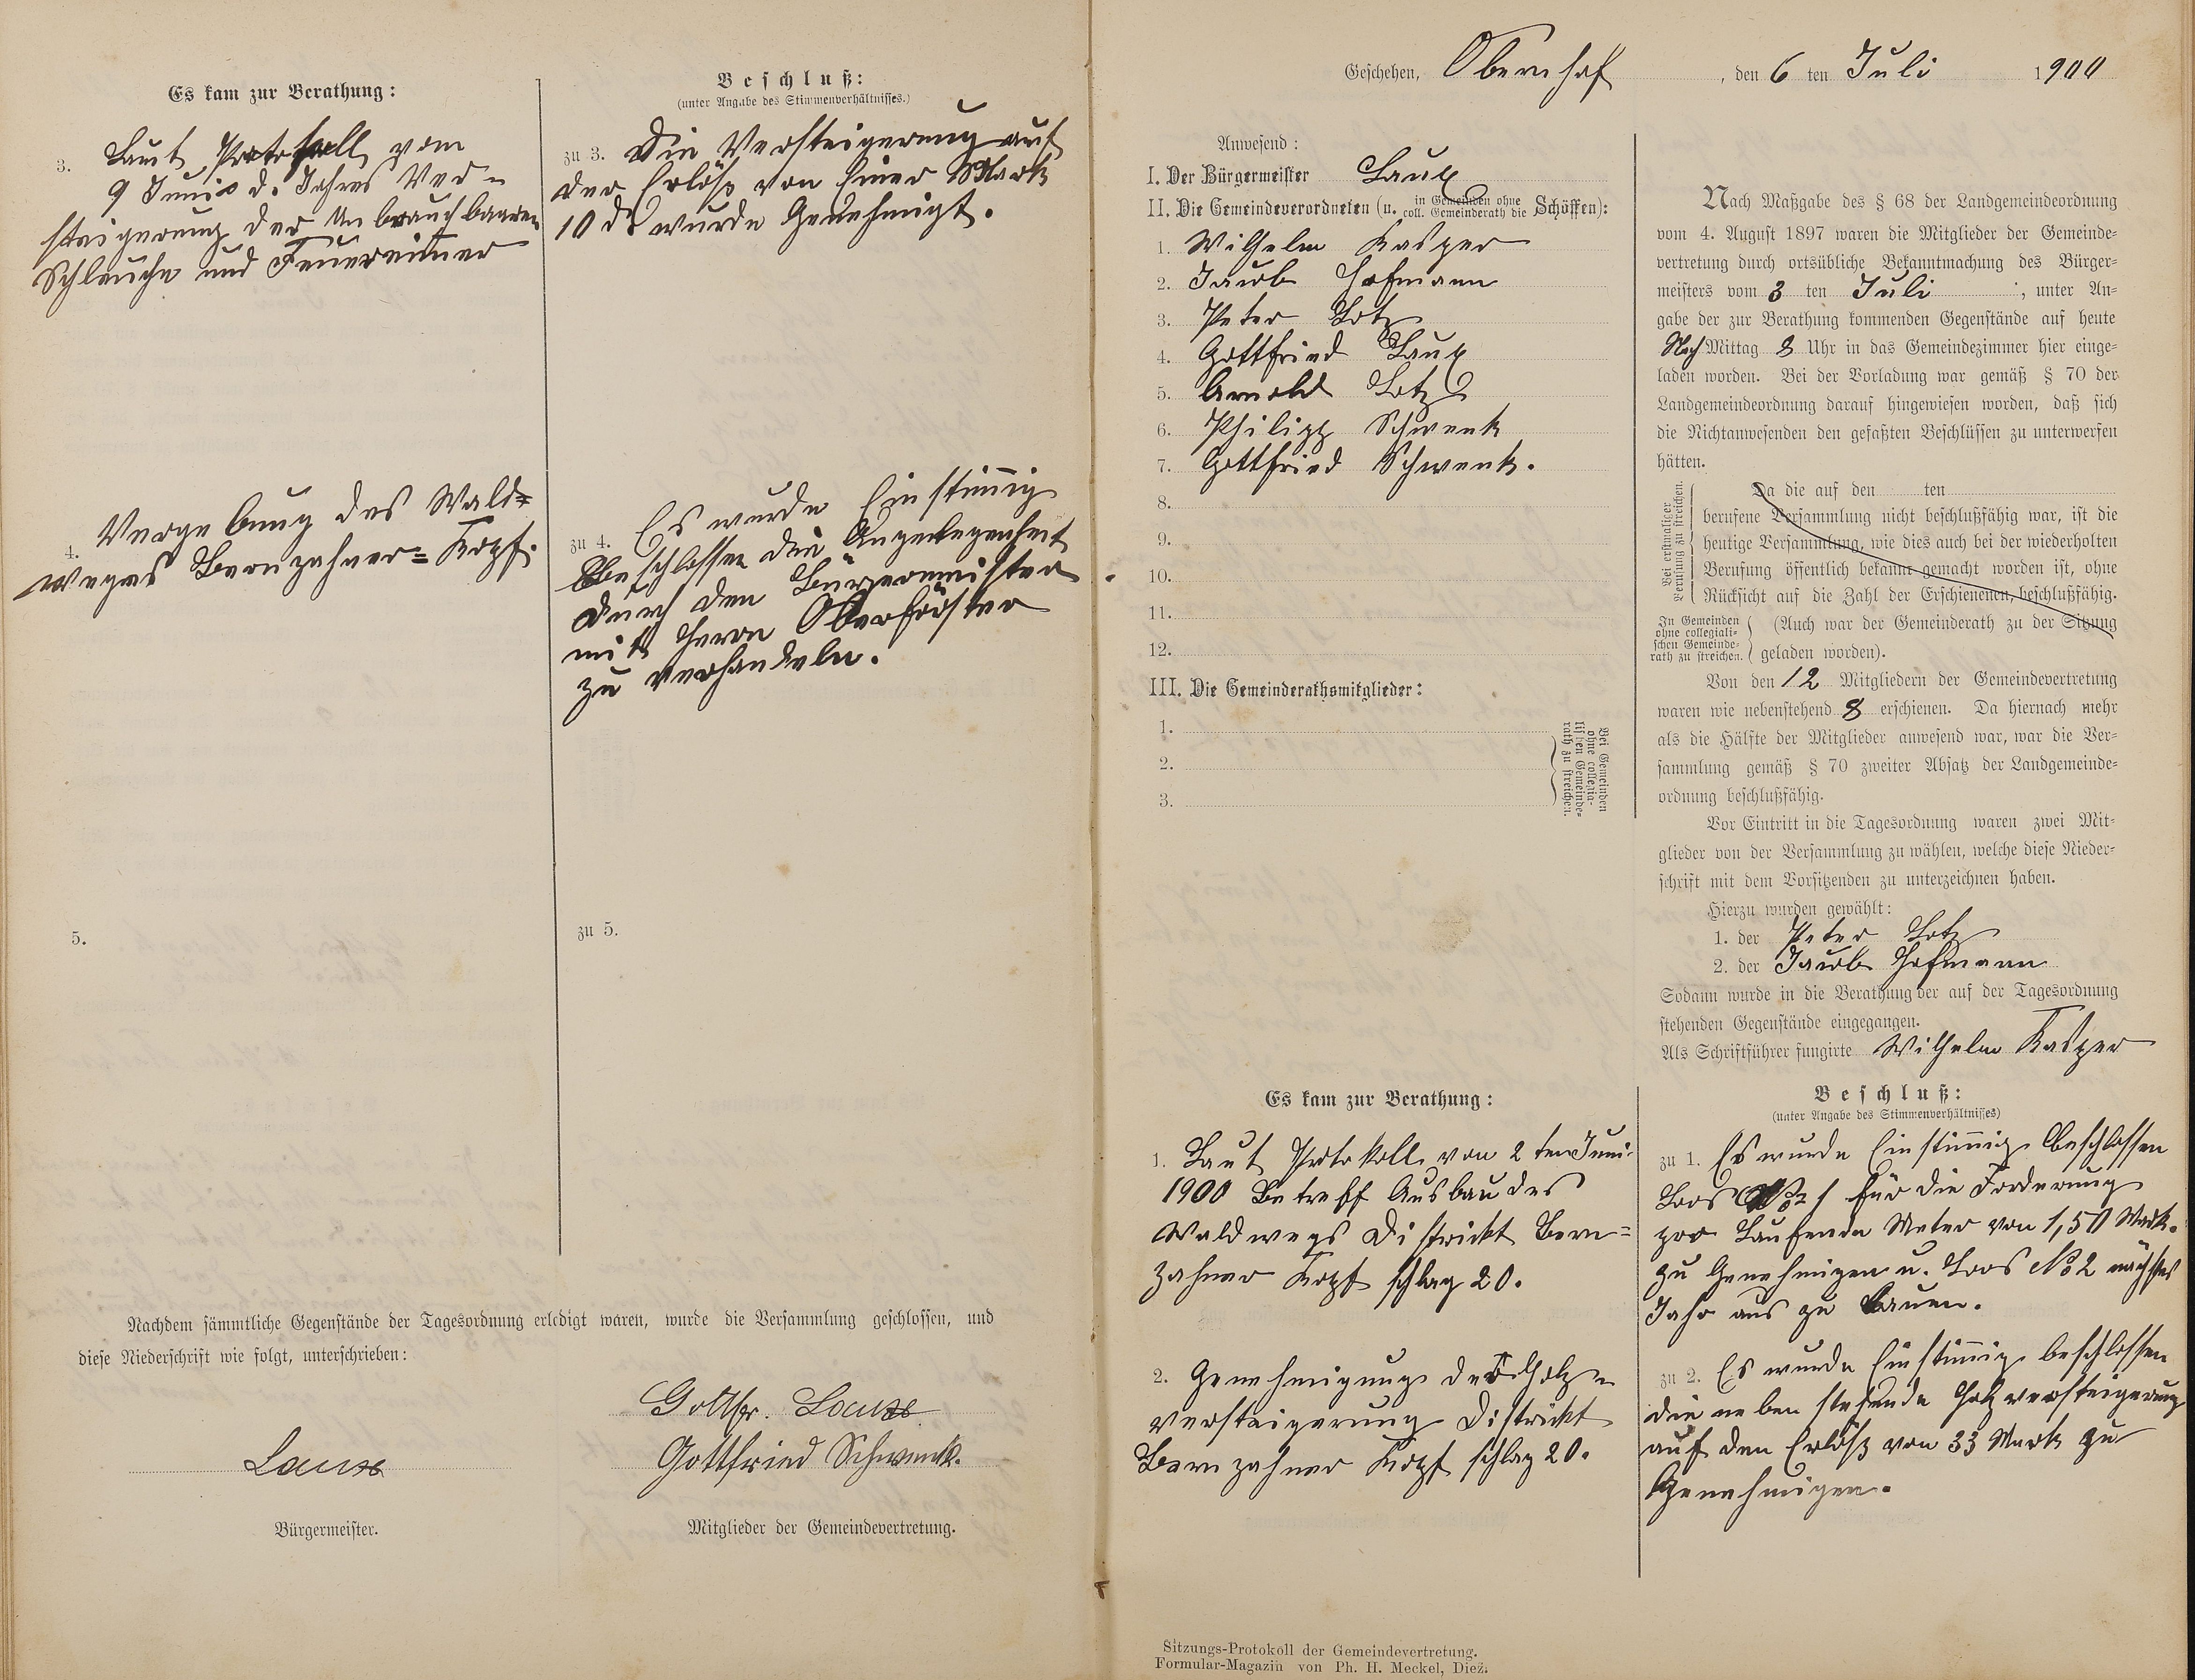 Es kam zur Berathung:
3. Laut Protokoll vom
9 Juni d. Jahres Ver-
steigerung der Unbrauchbaaren
Schläuche und Feuereimer
4. Vergebung des Wald-
weges Bernzahner-Kopf.
5.
Beschluß:
(unter Angabe des Stimmenverhältnisses.)
zu 3. Die Versteigerung auf
der Erlöß von Einer Mark
10 d wurde Genehmigt.
zu 4. Es wurde Einstimig
Beschlossen die Angelegenheit
durch den Bürgermeister
mit Herrn Oberförster
zu verhandeln.
zu 5.
Nachdem sämmtliche Gegenstände der Tagesordnung erledigt waren, wurde die Versammlung geschlossen, und
diese Niederschrift wie folgt, unterschrieben:
Gottfr. Laux
Laux
Gottfried Schwenk.
Bürgermeister.
Mitglieder der Gemeindevertretung.
Geschehen, Obernhof, den 6 ten Juli 1900
Anwesend:
I. Der Bürgermeister Laux
II. Die Gemeindeverordneten (u. in Gemeinden ohne coll. Gemeinderath die Schöffen):
1. Wilhelm Kasper
2. Jacob Hofmann
3. Peter Lotz
4. Gottfried Laux
5. Arnold Lotz
6. Philipp Schwenk
7. Gottfried Schwenk.
8.
9.
10.
11.
12.
III. Die Gemeinderathsmitglieder:
1.
2.
3.
Bei Gemeinden
ohne collegia-
lischen Gemeinde-
rath zu streichen.
Nach Maßgabe des § 68 der Landgemeindeordnung
vom 4. August 1897 waren die Mitglieder der Gemeinde-
vertretung durch ortsübliche Bekanntmachung des Bürger-
meisters vom 3 ten Juli, unter An-
gabe der zur Berathung kommenden Gegenstände auf heute
Nach Mittag 8 Uhr in das Gemeindezimmer hier einge-
laden worden. Bei der Vorladung war gemäß § 70 der
Landgemeindeordnung darauf hingewiesen worden, daß sich
die Nichtanwesenden den gefaßten Beschlüssen zu unterwerfen
hätten.
Bei erstmaliger
Berufung zu streichen.
Da die auf den ten
berufene Versammlung nicht beschlußfähig war, ist die
heutige Versammlung, wie dies auch bei der wiederholten
Berufung öffentlich bekannt gemacht worden ist, ohne
Rücksicht auf die Zahl der Erschienenen, beschlußfähig.
In Gemeinden
ohne collegiali-
schen Gemeinde-
rath zu streichen.
(Auch war der Gemeinderath zu der Sitzung
geladen worden).
Von den 12 Mitgliedern der Gemeindevertretung
waren wie nebenstehend 8 erschienen. Da hiernach mehr
als die Hälfte der Mitglieder anwesend war, war die Ver-
sammlung gemäß § 70 zweiter Absatz der Landgemeinde-
ordnung beschlußfähig.
Vor Eintritt in die Tagesordnung waren zwei Mit-
glieder von der Versammlung zu wählen, welche diese Nieder-
schrift mit dem Vorsitzenden zu unterzeichnen haben.
Hierzu wurden gewählt:
1. der Peter Lotz
2. der Jacob Hofmann
Sodann wurde in die Berathung der auf der Tagesordnung
stehenden Gegenstände eingegangen.
Als Schriftführer fungirte Wilhelm Kasper
Es kam zur Berathung:
1. Laut Protokoll von 2 ten Juni
1900 Betreff Ausbau des
Waldwegs Districkt Bern-
zahner Kopf schlag 20.
2. Genehmigung der Holz-
versteigerung Districkt
Bernzahner Kopf schlag 20.
Beschluß:
(unter Angabe des Stimmenverhältnisses)
zu 1. Es wurde Einstimig Beschlossen
Loos No 1 für die Forderung
pro Laufende Meter von 1,50 Mark.
zu Genehmigen u. Loos No 2 nächstes
Jahr aus zu bauen.
zu 2. Es wurde Einstimig beschlossen
die neben stehende Holzversteigerung
auf den Erlöß von 33 Mark zu
Genehmigen.
Sitzungs-Protokoll der Gemeindevertretung.
Formular-Magazin von Ph. H. Meckel, Diez.